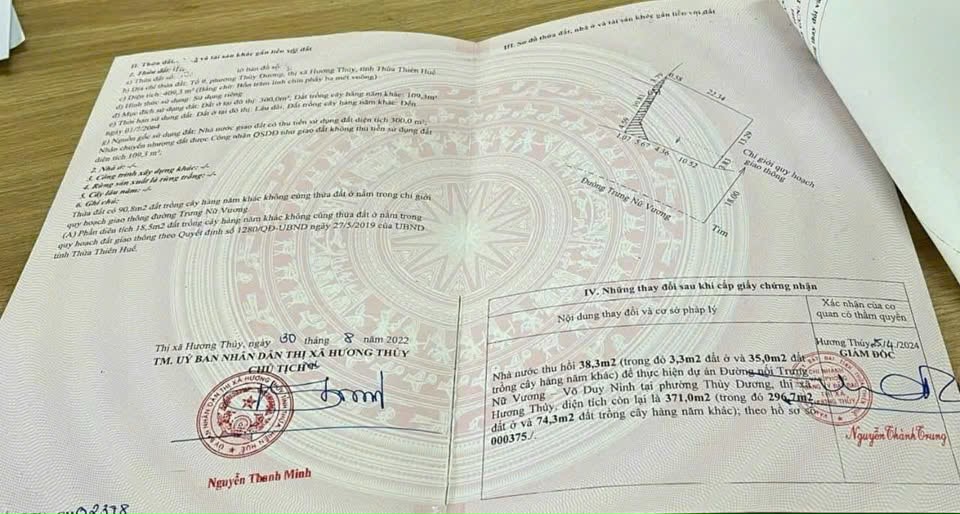 II. Thửa đất, và tài sản khác gắn liền với đất
1. Thửa đất:
a) Thửa đất số: tờ bản đồ số:
b) Địa chỉ thửa đất: Tổ 8, phường Thủy Dương, thị xã Hương Thủy, tỉnh Thừa Thiên Huế
c) Diện tích: 409,3 m² (Bằng chữ: Bốn trăm linh chín phẩy ba mét vuông)
d) Hình thức sử dụng: Sử dụng riêng
đ) Mục đích sử dụng đất: Đất ở tại đô thị: 300,0m²; Đất trồng cây hàng năm khác: 109,3m²
e) Thời hạn sử dụng đất: Đất ở tại đô thị: Lâu dài; Đất trồng cây hàng năm khác: Đến
ngày 01/7/2064
g) Nguồn gốc sử dụng đất: Nhà nước giao đất có thu tiền sử dụng đất diện tích 300,0 m²;
Nhận chuyển nhượng đất được Công nhận QSDĐ như giao đất không thu tiền sử dụng đất
diện tích 109,3 m²
2. Nhà ở: -/-
3. Công trình xây dựng khác: -/-
4. Rừng sản xuất là rừng trồng: -/-
5. Cây lâu năm: -/-
6. Ghi chú:
Thửa đất có 90,8m2 đất trồng cây hàng năm khác không cùng thửa đất ở nằm trong chỉ giới
quy hoạch giao thông đường Trưng Nữ Vương
(A) Phần diện tích 18,5m2 đất trồng cây hàng năm khác không cùng thửa đất ở nằm trong
quy hoạch đất giao thông theo Quyết định số 1280/QĐ-UBND ngày 27/5/2019 của UBND
tỉnh Thừa Thiên Huế.
Thị xã Hương Thủy, ngày 30 tháng 8 năm 2022
TM. UỶ BAN NHÂN DÂN THỊ XÃ HƯƠNG THỦY
CHỦ TỊCH
Nguyễn Thanh Minh
III. Sơ đồ thửa đất, nhà ở và tài sản khác gắn liền với đất
0.58
23.34
13.29
1.07
5.67
4.36
10.52
2.83
18.00
Chỉ giới quy hoạch
giao thông
Đường Trưng Nữ Vương
Tim
IV. Những thay đổi sau khi cấp giấy chứng nhận
Nội dung thay đổi và cơ sở pháp lý
Xác nhận của cơ
quan có thẩm quyền
Nhà nước thu hồi 38,3m2 (trong đó 3,3m2 đất ở và 35,0m2 đất
trồng cây hàng năm khác) để thực hiện dự án Đường nối Trưng
Nữ Vương - Võ Duy Ninh tại phường Thủy Dương, thị xã
Hương Thủy, diện tích còn lại là 371,0m2 (trong đó 296,7m2
đất ở và 74,3m2 đất trồng cây hàng năm khác); theo hồ sơ số
000375./.
Hương Thủy, 25/4/2024
GIÁM ĐỐC
Nguyễn Thành Trung